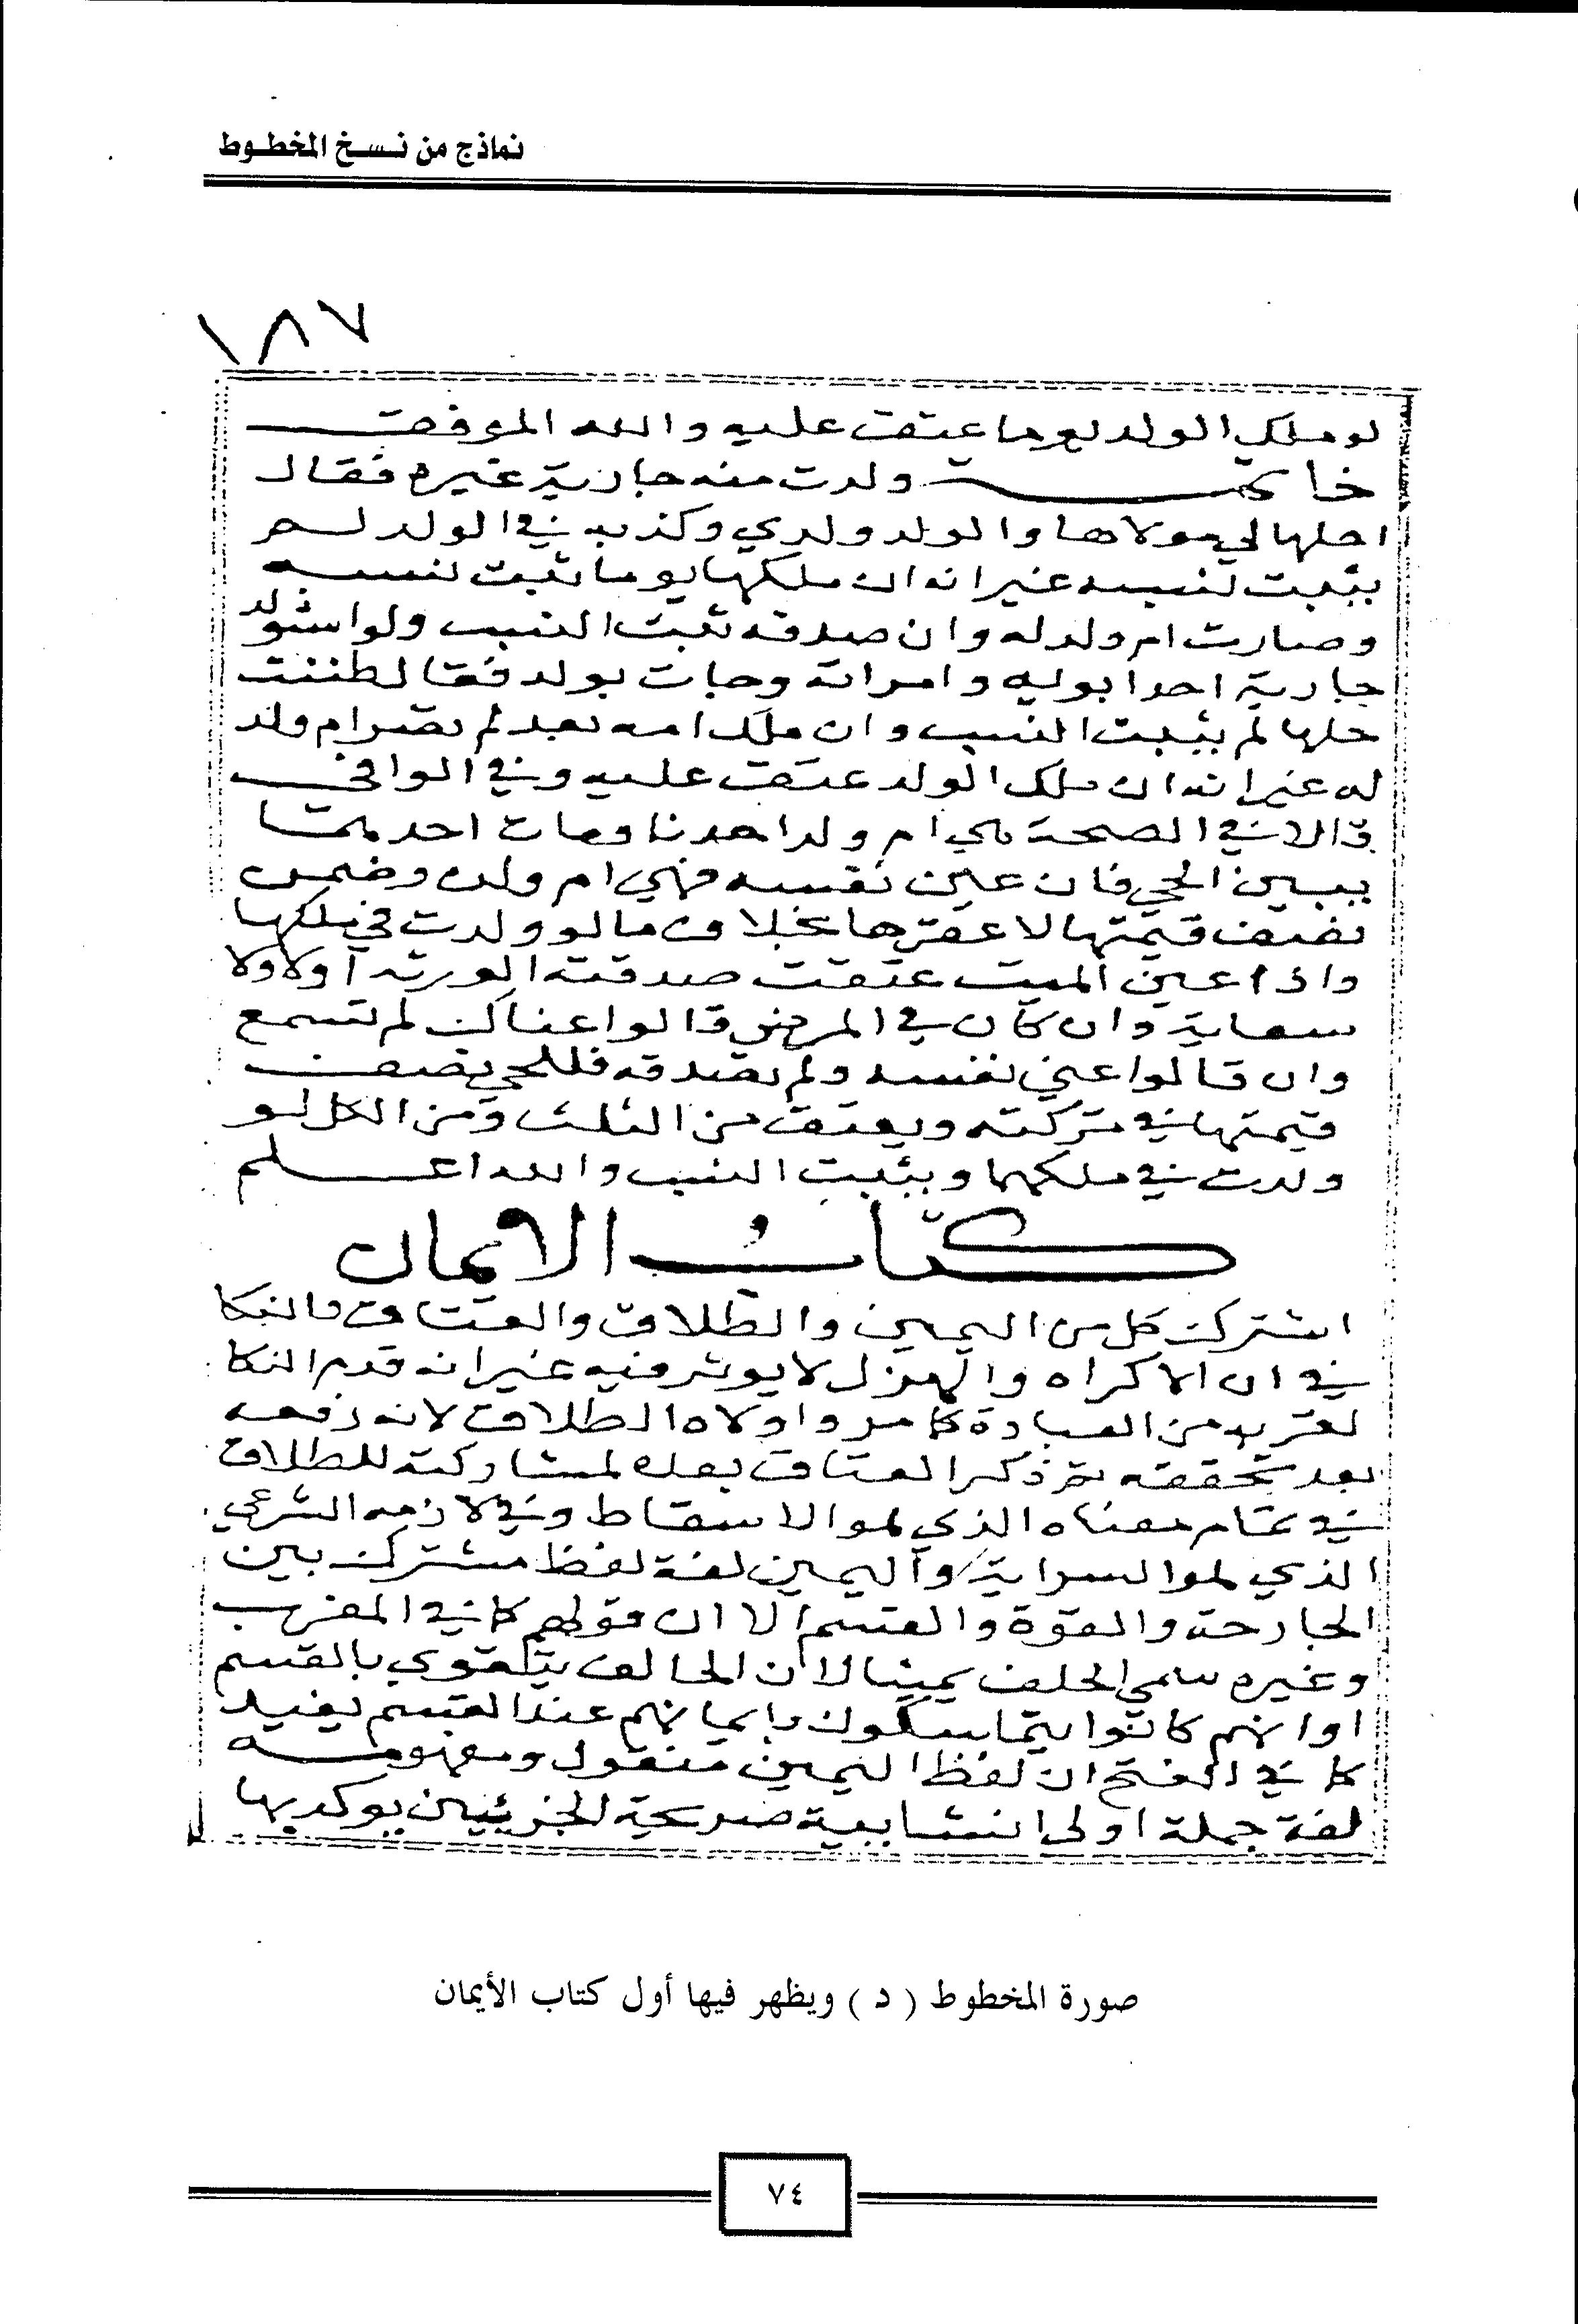 نماذج من نسخ المخطوط
١٨٧
لو ملك الولد يوما عتق عليه والله الموفق
خاتمة ولدت منه جارية غيره فقال
احلها لي مولاها والولد ولدي وكذبه في الولد لم
يثبت نسبه غير انه ان ملكها يوما ثبت نسبه
وصارت ام ولد له وان صدقه ثبت النسب ولو استولد
جارية احد ابويه وامراته وجات بولد فقال ظننت
حلها لم يثبت النسب وان ملك امه بعد لم تصر ام ولد
له غير انه ان ملك الولد عتق عليه وفي الوافي
قالا في الصحة هي ام ولد احدنا ومات احدهما
يبين الحي فان عين نفسه فهي ام ولده وضمن
نصف قيمتها لا عقرها بخلاف ما لو ولدت في ملكها
واذا عين الميت عتقت صدقته الورثه اولا ولا
سعاية وان كان في المرض وقالوا عناك لم تسمع
وان قالوا عني نفسه ولم نصدقه فللحي نصف
قيمتها في تركته ويعتق من الثلث ومن الكل لو
ولدت في ملكهما ويثبت النسب والله اعلم
كتاب الايمان
اشترك كل من اليمين والطلاق والعتاق والنكا
في ان الاكراه والهزل لا يوثر فيه غير انه قدم النكا
لقربه من العبادة كما مر واولاه الطلاق لانه رفعه
بعد تحققه ثم ذكر العتاق بعده لمشاركته للطلاق
في تمام معناه الذي هو الاسقاط وفي لازمه الشرعي
الذي هو السراية واليمين لغة لفظ مشترك بين
الجارحة والقوة والقسم الا ان قولهم كما في المغرب
وغيره سمي الحلف يمينا لان الحالف يتقوي بالقسم
او انهم كانوا يتماسكون بايمانهم عند القسم يفيد
كما في الفتح ان لفظ اليمين منقول ومفهومه
لغة جملة اولى انشايية صريحة الجزئيين يوكد بها
صورة المخطوط ( د ) ويظهر فيها أول كتاب الأيمان
٧٤